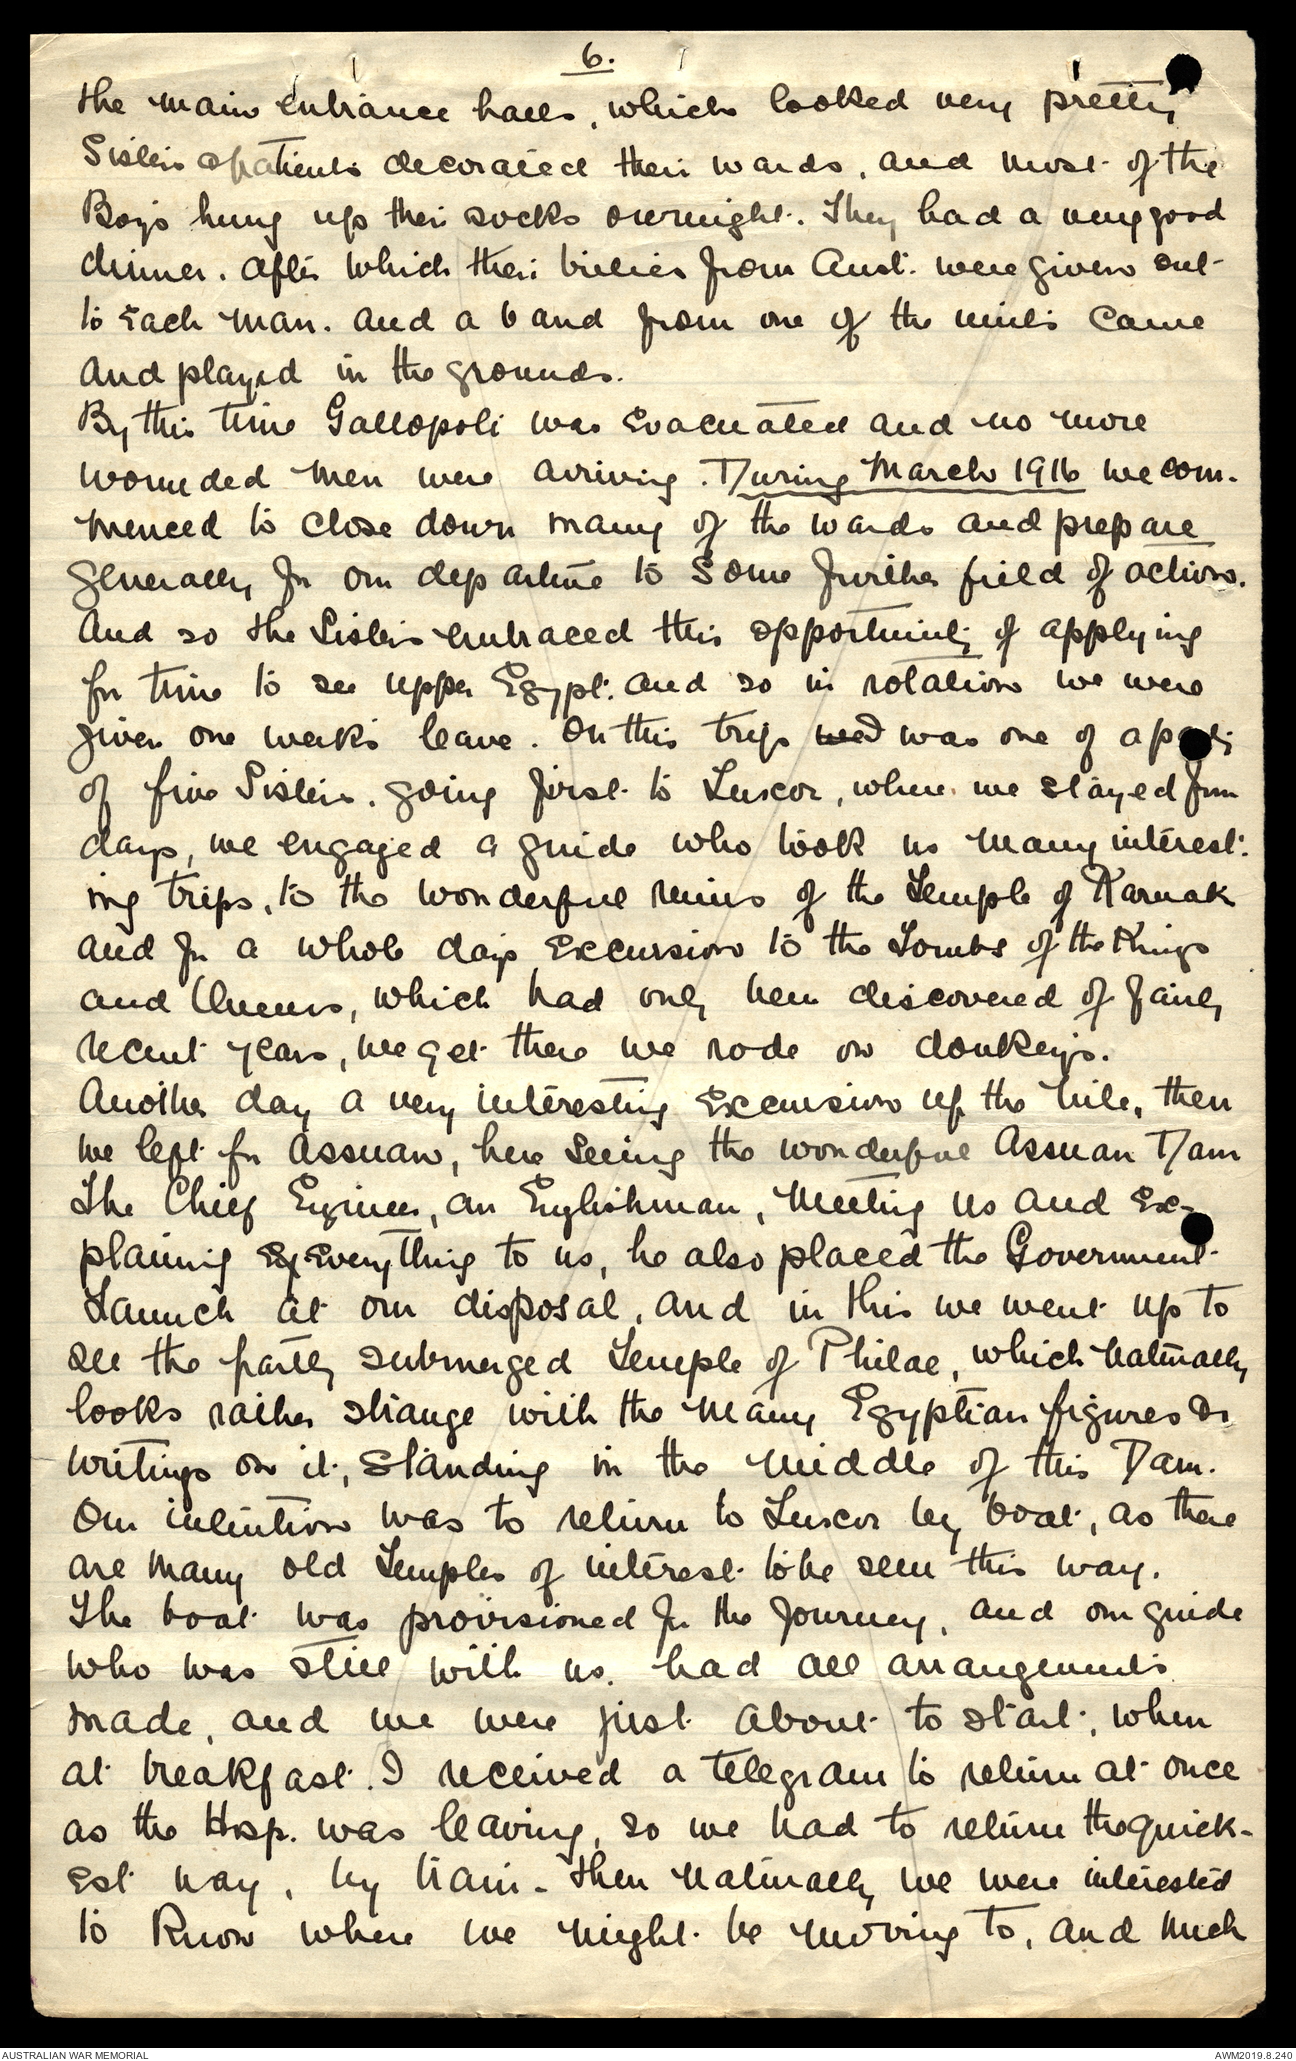 6.
the main entrance halls, which looked very pretty
Sisters & patients decorated their wards, and most of the
Boys hung up their socks overnight. They had a very good
dinner. After which their billies from Aust. were given out
to each man. And a band from one of the units came
and played in the grounds.
By this time Gallopoli was evacuated and no more
wounded men were arriving. During March 1916 we com-
menced to close down many of the wards and prepare
generally for our departure to some further field of action.
And so the Sisters embraced this opportunity of applying
for time to see upper Egypt. and so in rotation we were
given one weeks leave. On this trip was one of a party
of five Sisters. going first to Luxor, where we stayed four
days, we engaged a guide who took us many interest-
ing trips, to the wonderful ruins of the Temple of Karnak
and for a whole days excursion to the Tombs of the Kings
and Queens, which had only been discovered of fairly
recent years, we get there we rode on donkeys.
Another day a very interesting excursion up the Nile, then
we left for Assuan, here seeing the wonderful Assuan Dam
The Chief Enginer, an Englishman, meeting us and ex-
plaining everything to us, he also placed the Government
Launch at our disposal, and in this we went up to
see the partly submerged Temple of Philae, which naturally
looks rather strange with the many Egyptian figures &
writings on it, standing in the middle of this Dam.
Our intention was to return to Luxor by boat, as there
are many old Temples of interest to be seen this way.
The boat was provisioned for the journey, and our guide
who was still with us. had all arrangements
made, and we were just about to start, when
at breakfast. I received a telegram to return at once
as the Hosp. was leaving, so we had to return the quick-
est way, by train - then naturally we were interested
to know where we might be moving to, and much
AUSTRALIAN WAR MEMORIAL
AWM2019.8.240